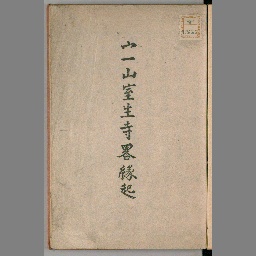 宀一山室生寺畧縁起